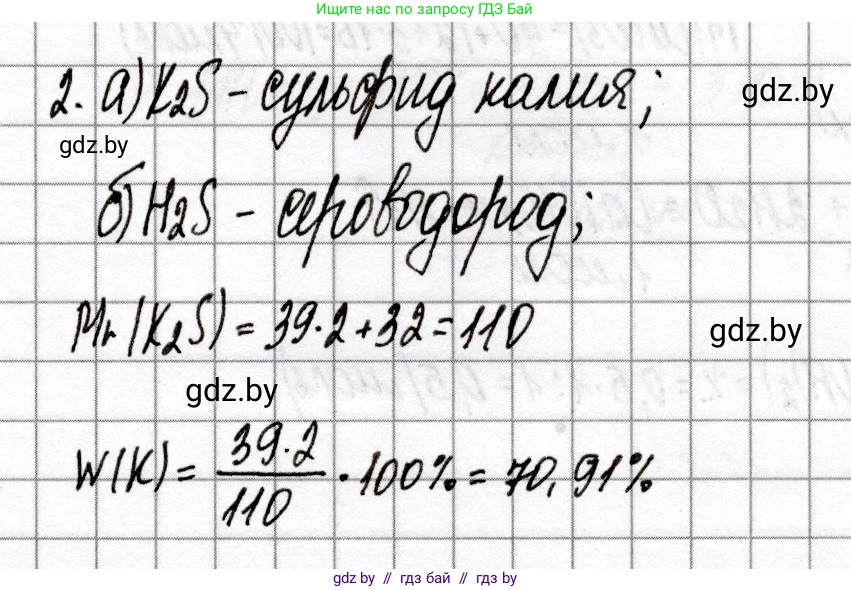 Ищите нас по запросу ГДЗ Бай
2. а) K₂S - сульфид калия;
gdz.by
gdz.by
б) H₂S - сероводород;
Mr (K₂S) = 39·2+32=110
gdz.by
gdz.by
W(K) = 39·2/110 · 100% = 70,91%
gdz.by // гдз бай // гдз by